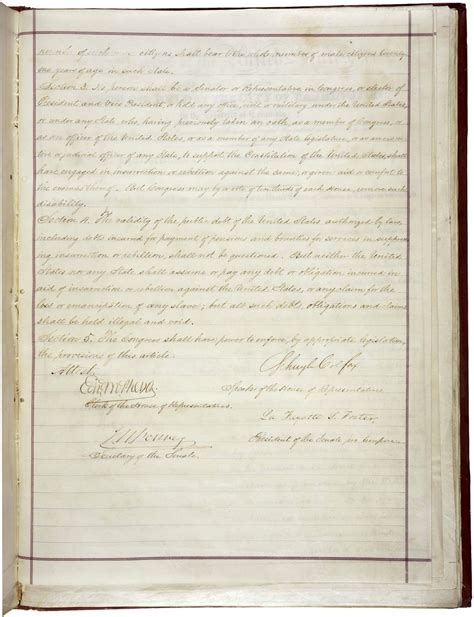 number of such male citizens shall bear to the whole number of male citizens twenty-
one years of age in such State.
Section 3. No person shall be a Senator or Representative in Congress, or elector of
President and Vice President, or hold any office, civil or military, under the United States,
or under any State, who, having previously taken an oath, as a member of Congress, or
as an officer of the United States, or as a member of any State legislature, or as an execu-
tive or judicial officer of any State, to support the Constitution of the United States, shall
have engaged in insurrection or rebellion against the same, or given aid or comfort to
the enemies thereof. But Congress may by a vote of two thirds of each House, remove such
disability.
Section 4. The validity of the public debt of the United States, authorized by law,
including debts incurred for payment of pensions and bounties for services in suppress-
ing insurrection or rebellion, shall not be questioned. But neither the United
States nor any State shall assume or pay any debt or obligation incurred in
aid of insurrection or rebellion against the United States, or any claim for the
loss or emancipation of any slave; but all such debts, obligations and claims
shall be held illegal and void.
Section 5. The Congress shall have power to enforce, by appropriate legislation,
the provisions of this article.
Attest
Schuyler Colfax
Edwd McPherson
Speaker of the House of Representatives
Clerk of the House of Representatives.
La Fayette S. Foster
J W Forney
President of the Senate pro tempore.
Secretary of the Senate.